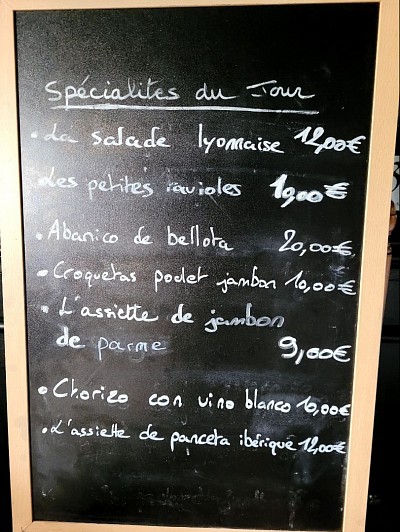 Spécialités du Jour
• La salade lyonnaise 12,00€
Les petites ravioles 19,00€
• Abanico de bellota 20,00€
• Croquetas poulet jambon 10,00€
• L'assiette de jambon
de parme 9,00€
• Chorizo con vino blanco 10,00€
• L'assiette de panceta ibérique 12,00€